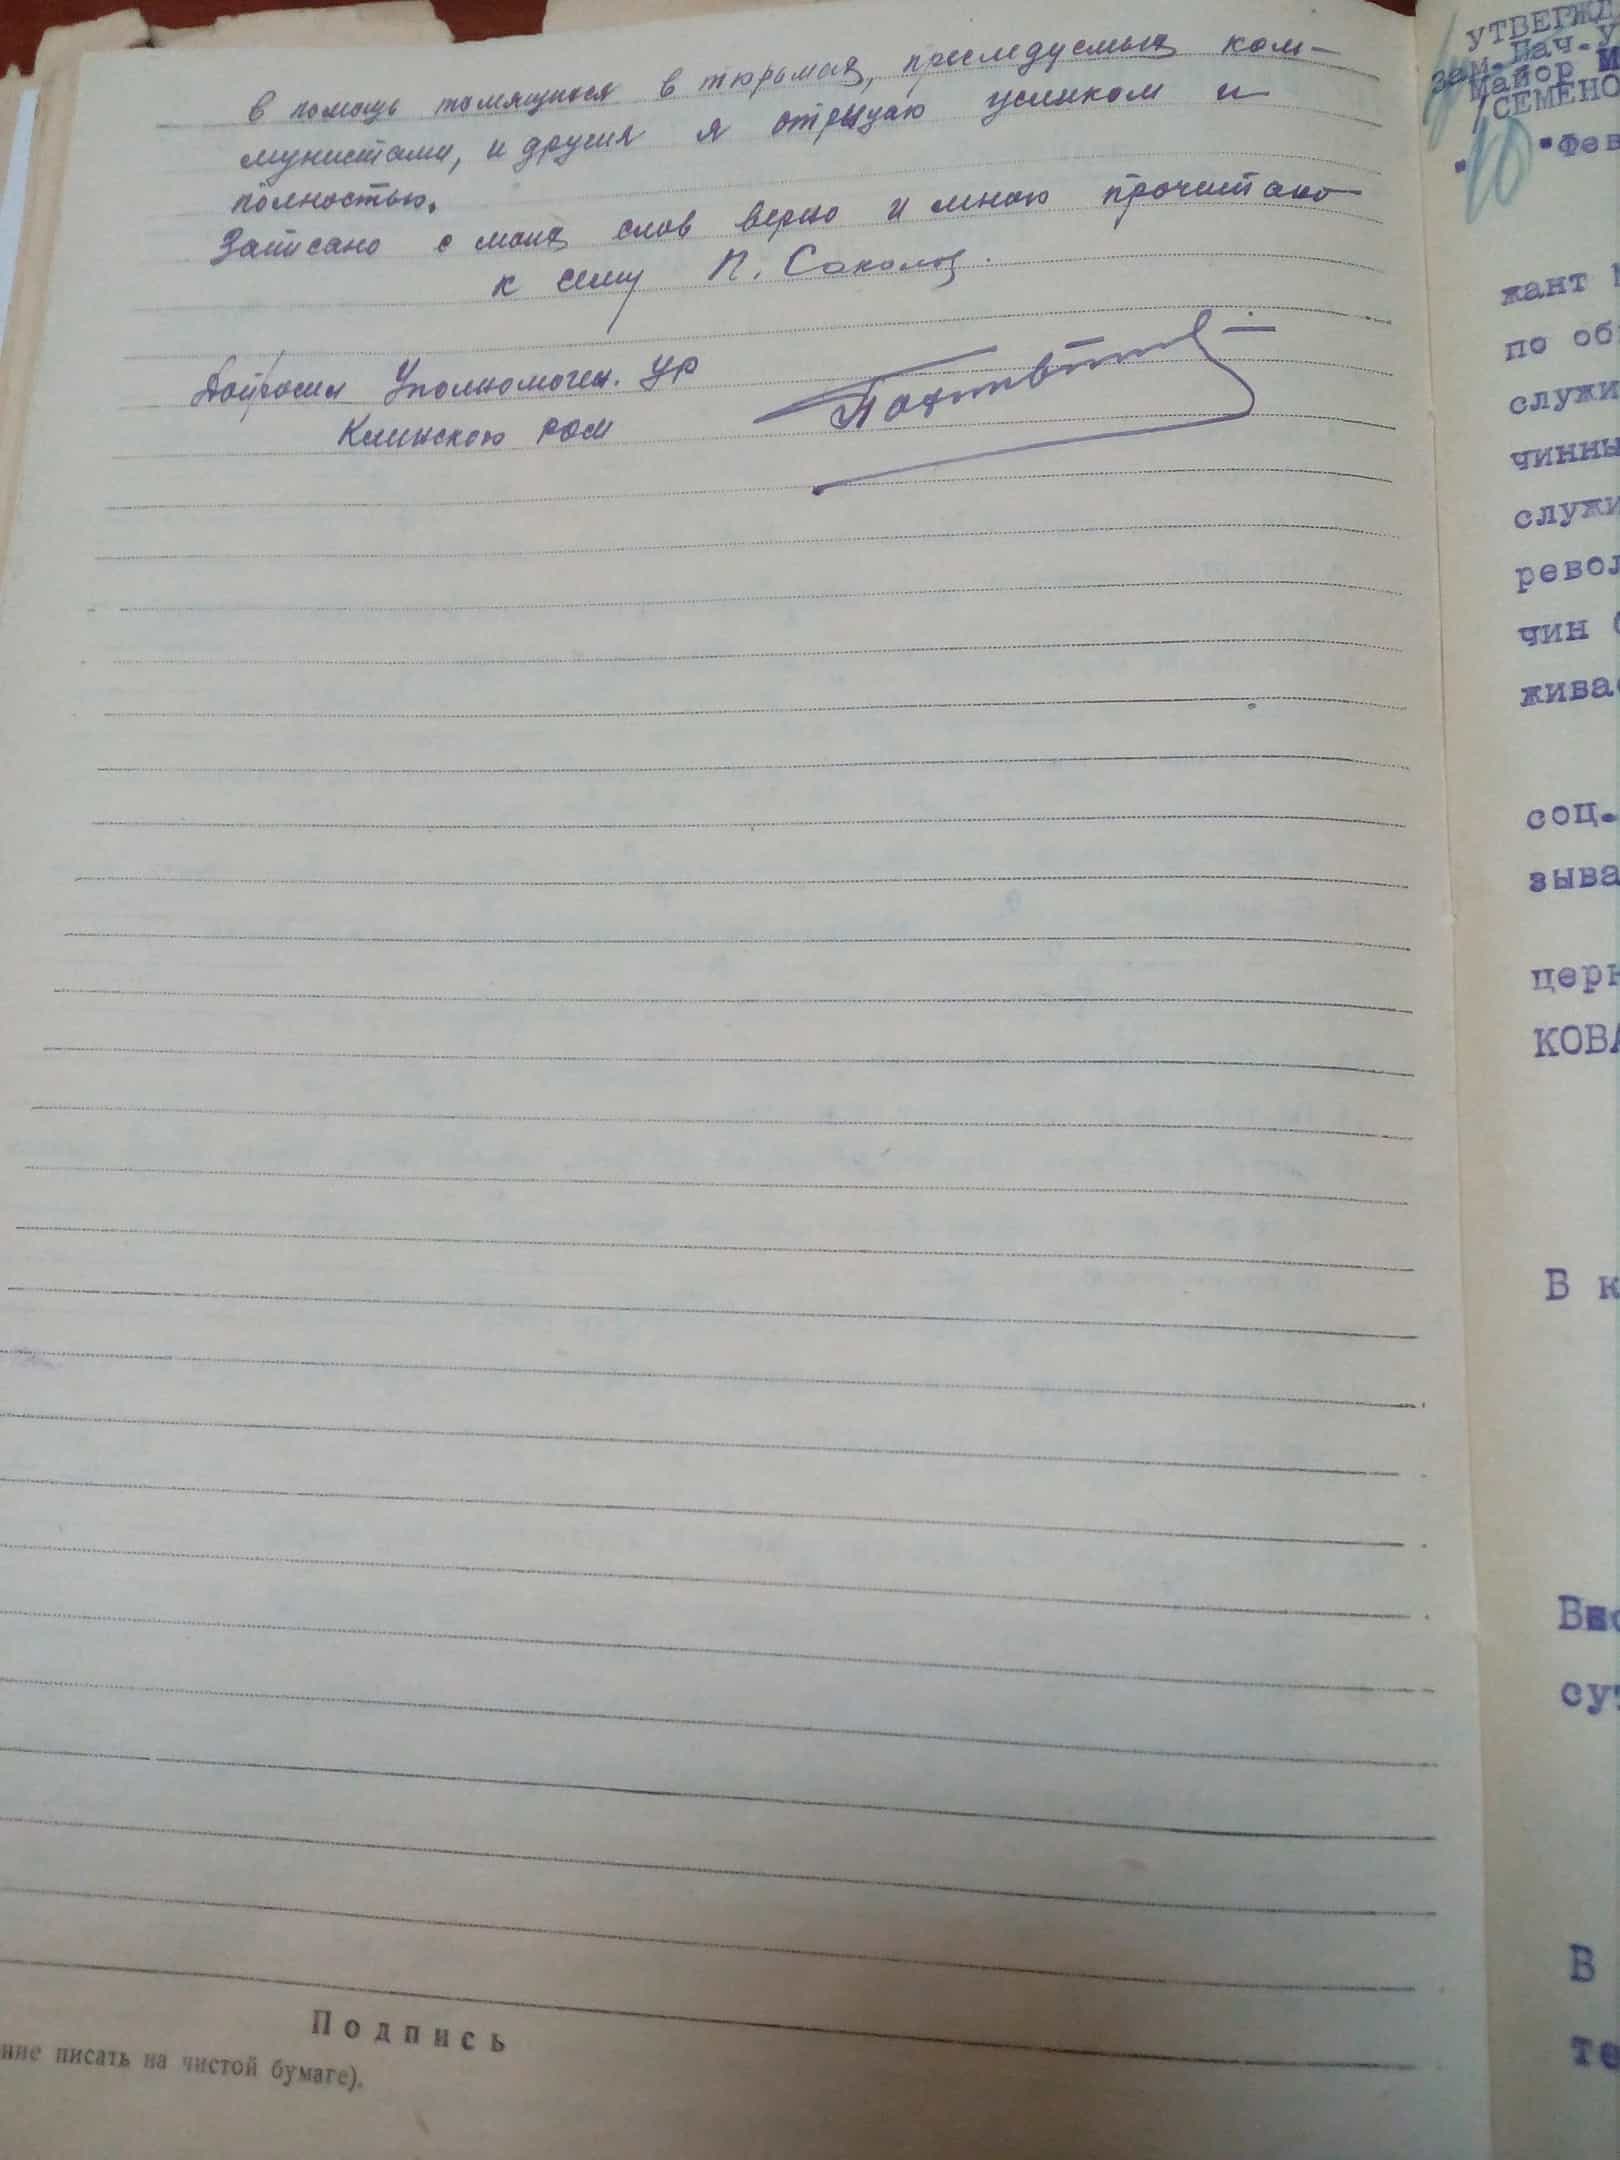 в помощь томящихся в тюрьмах, преследуемых ком-
мунистами, и других я отрицаю целиком и
полностью.
Записано с моих слов верно и мною прочитано
к сему П. Соколов.
Допросил Уполномочен. УР
Клинского РОМ
Подпись
ние писать на чистой бумаге).
УТВЕРЖД
Зам. Нач. У
Майор М
/СЕМЕНО
"10" "Фев
жант
по об
служи
чинны
служи
револ
чин
живае
соц.
зыва
церк
КОВА
В к
Вно
суч
В
те